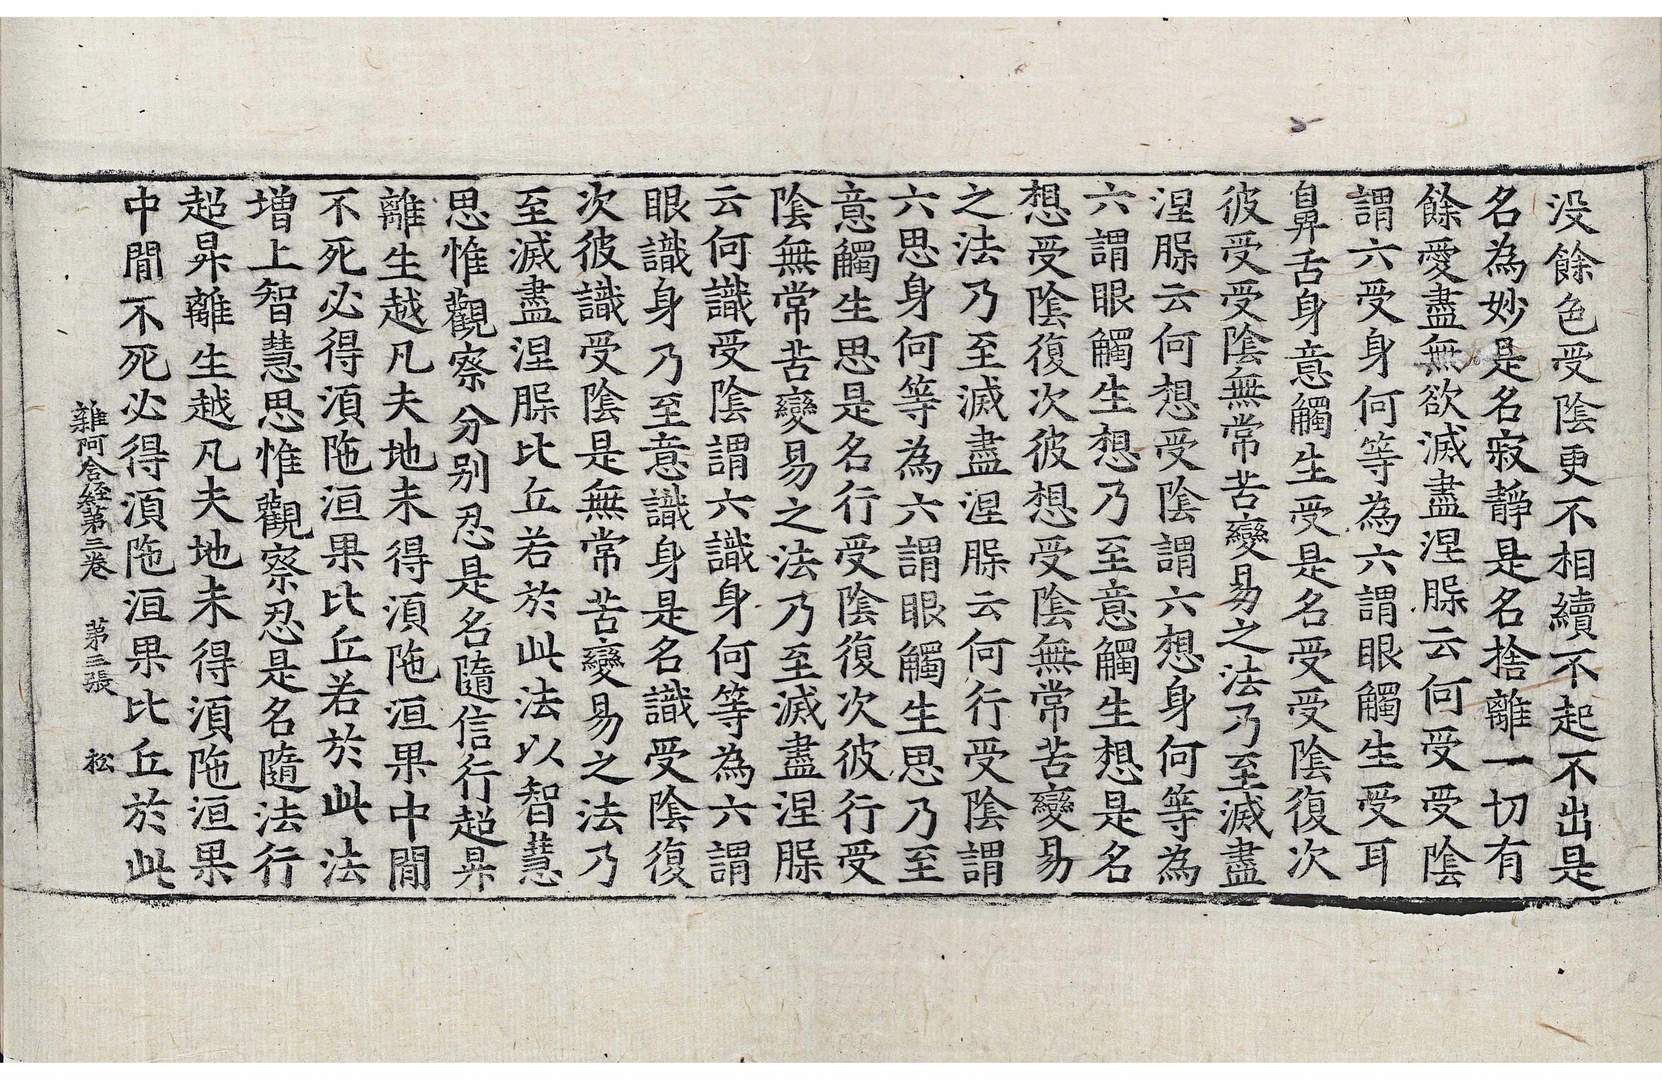 没餘色受陰更不相續不起不出是
名為妙是名寂靜是名捨離一切有
餘愛盡無欲滅盡涅槃云何受受陰
謂六受身何等為六謂眼觸生受耳
鼻舌身意觸生受是名受受陰復次
彼受受陰無常苦變易之法乃至滅盡
涅槃云何想受陰謂六想身何等為
六謂眼觸生想乃至意觸生想是名
想受陰復次彼想受陰無常苦變易
之法乃至滅盡涅槃云何行受陰謂
六思身何等為六謂眼觸生思乃至
意觸生思是名行受陰復次彼行受
陰無常苦變易之法乃至滅盡涅槃
云何識受陰謂六識身何等為六謂
眼識身乃至意識身是名識受陰復
次彼識受陰是無常苦變易之法乃
至滅盡涅槃比丘若於此法以智慧
思惟觀察分別忍是名隨信行超昇
離生越凡夫地未得須陁洹果中閒
不死必得須陁洹果比丘若於此法
增上智慧思惟觀察忍是名隨法行
超昇離生越凡夫地未得須陁洹果
中閒不死必得須陁洹果比丘於此
雜阿含經第三卷 第三張 松